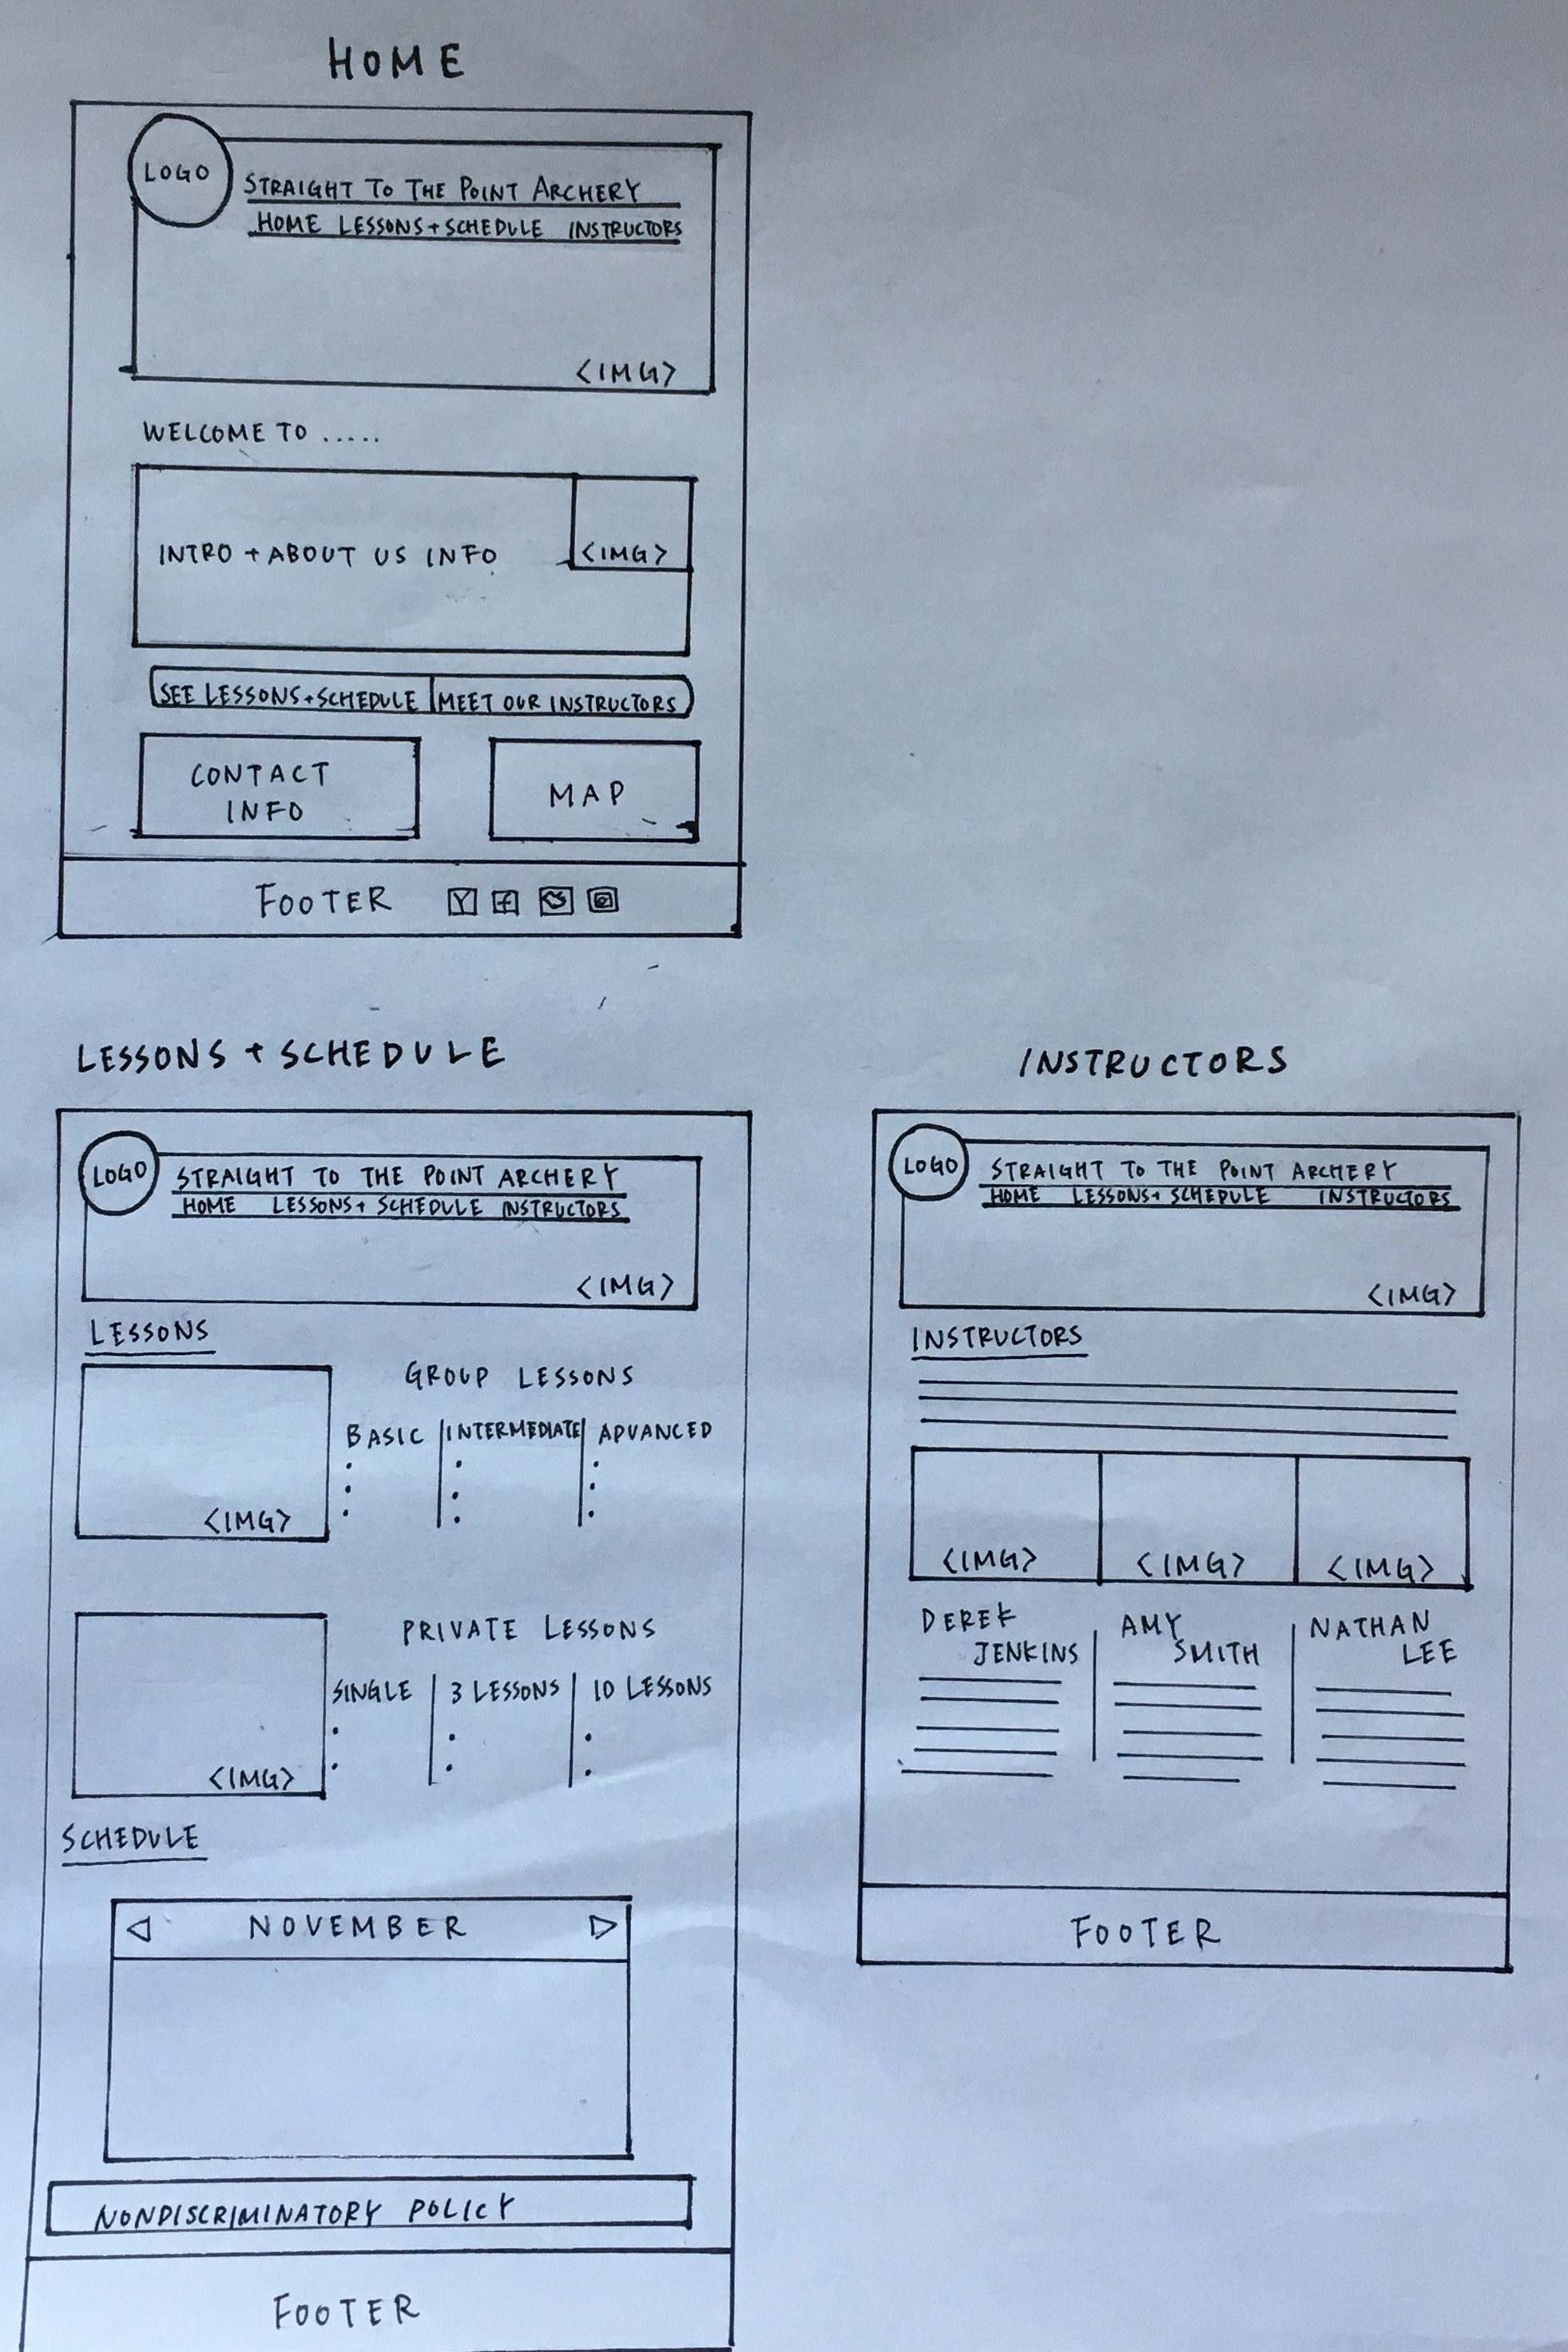 HOME
LOGO
STRAIGHT TO THE POINT ARCHERY
HOME LESSONS+SCHEDULE INSTRUCTORS
<IMG>
WELCOME TO .....
INTRO + ABOUT US INFO
<IMG>
SEE LESSONS+SCHEDULE MEET OUR INSTRUCTORS
CONTACT
INFO
MAP
FOOTER
LESSONS + SCHEDULE
LOGO
STRAIGHT TO THE POINT ARCHERY
HOME LESSONS+ SCHEDULE INSTRUCTORS
<IMG>
LESSONS
<IMG>
GROUP LESSONS
BASIC INTERMEDIATE ADVANCED
<IMG>
PRIVATE LESSONS
SINGLE 3 LESSONS 10 LESSONS
SCHEDULE
NOVEMBER
NONDISCRIMINATORY POLICY
FOOTER
INSTRUCTORS
LOGO
STRAIGHT TO THE POINT ARCHERY
HOME LESSONS+ SCHEDULE INSTRUCTORS
<IMG>
INSTRUCTORS
<IMG> <IMG> <IMG>
DEREK
JENKINS
AMY
SMITH
NATHAN
LEE
FOOTER